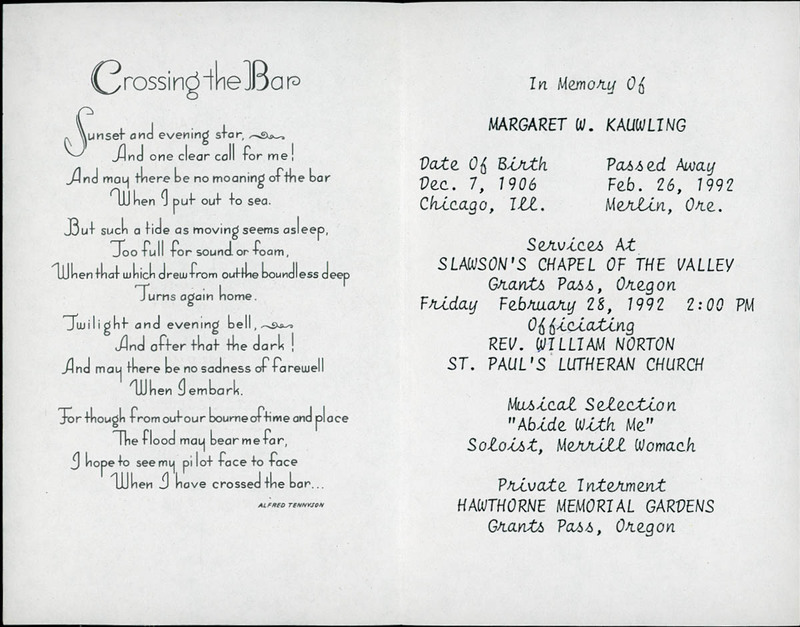 Crossing the Bar
Sunset and evening star,
And one clear call for me!
And may there be no moaning of the bar
When I put out to sea.
But such a tide as moving seems asleep,
Too full for sound or foam,
When that which drew from out the boundless deep
Turns again home.
Twilight and evening bell,
And after that the dark!
And may there be no sadness of farewell
When I embark.
For though from out our bourne of time and place
The flood may bear me far,
I hope to see my pilot face to face
When I have crossed the bar...
ALFRED TENNYSON
In Memory Of
MARGARET W. KAUWLING
Date Of Birth Passed Away
Dec. 7, 1906 Feb. 26, 1992
Chicago, Ill. Merlin, Ore.
Services At
SLAWSON'S CHAPEL OF THE VALLEY
Grants Pass, Oregon
Friday February 28, 1992 2:00 PM
Officiating
REV. WILLIAM NORTON
ST. PAUL'S LUTHERAN CHURCH
Musical Selection
"Abide With Me"
Soloist, Merrill Womach
Private Interment
HAWTHORNE MEMORIAL GARDENS
Grants Pass, Oregon